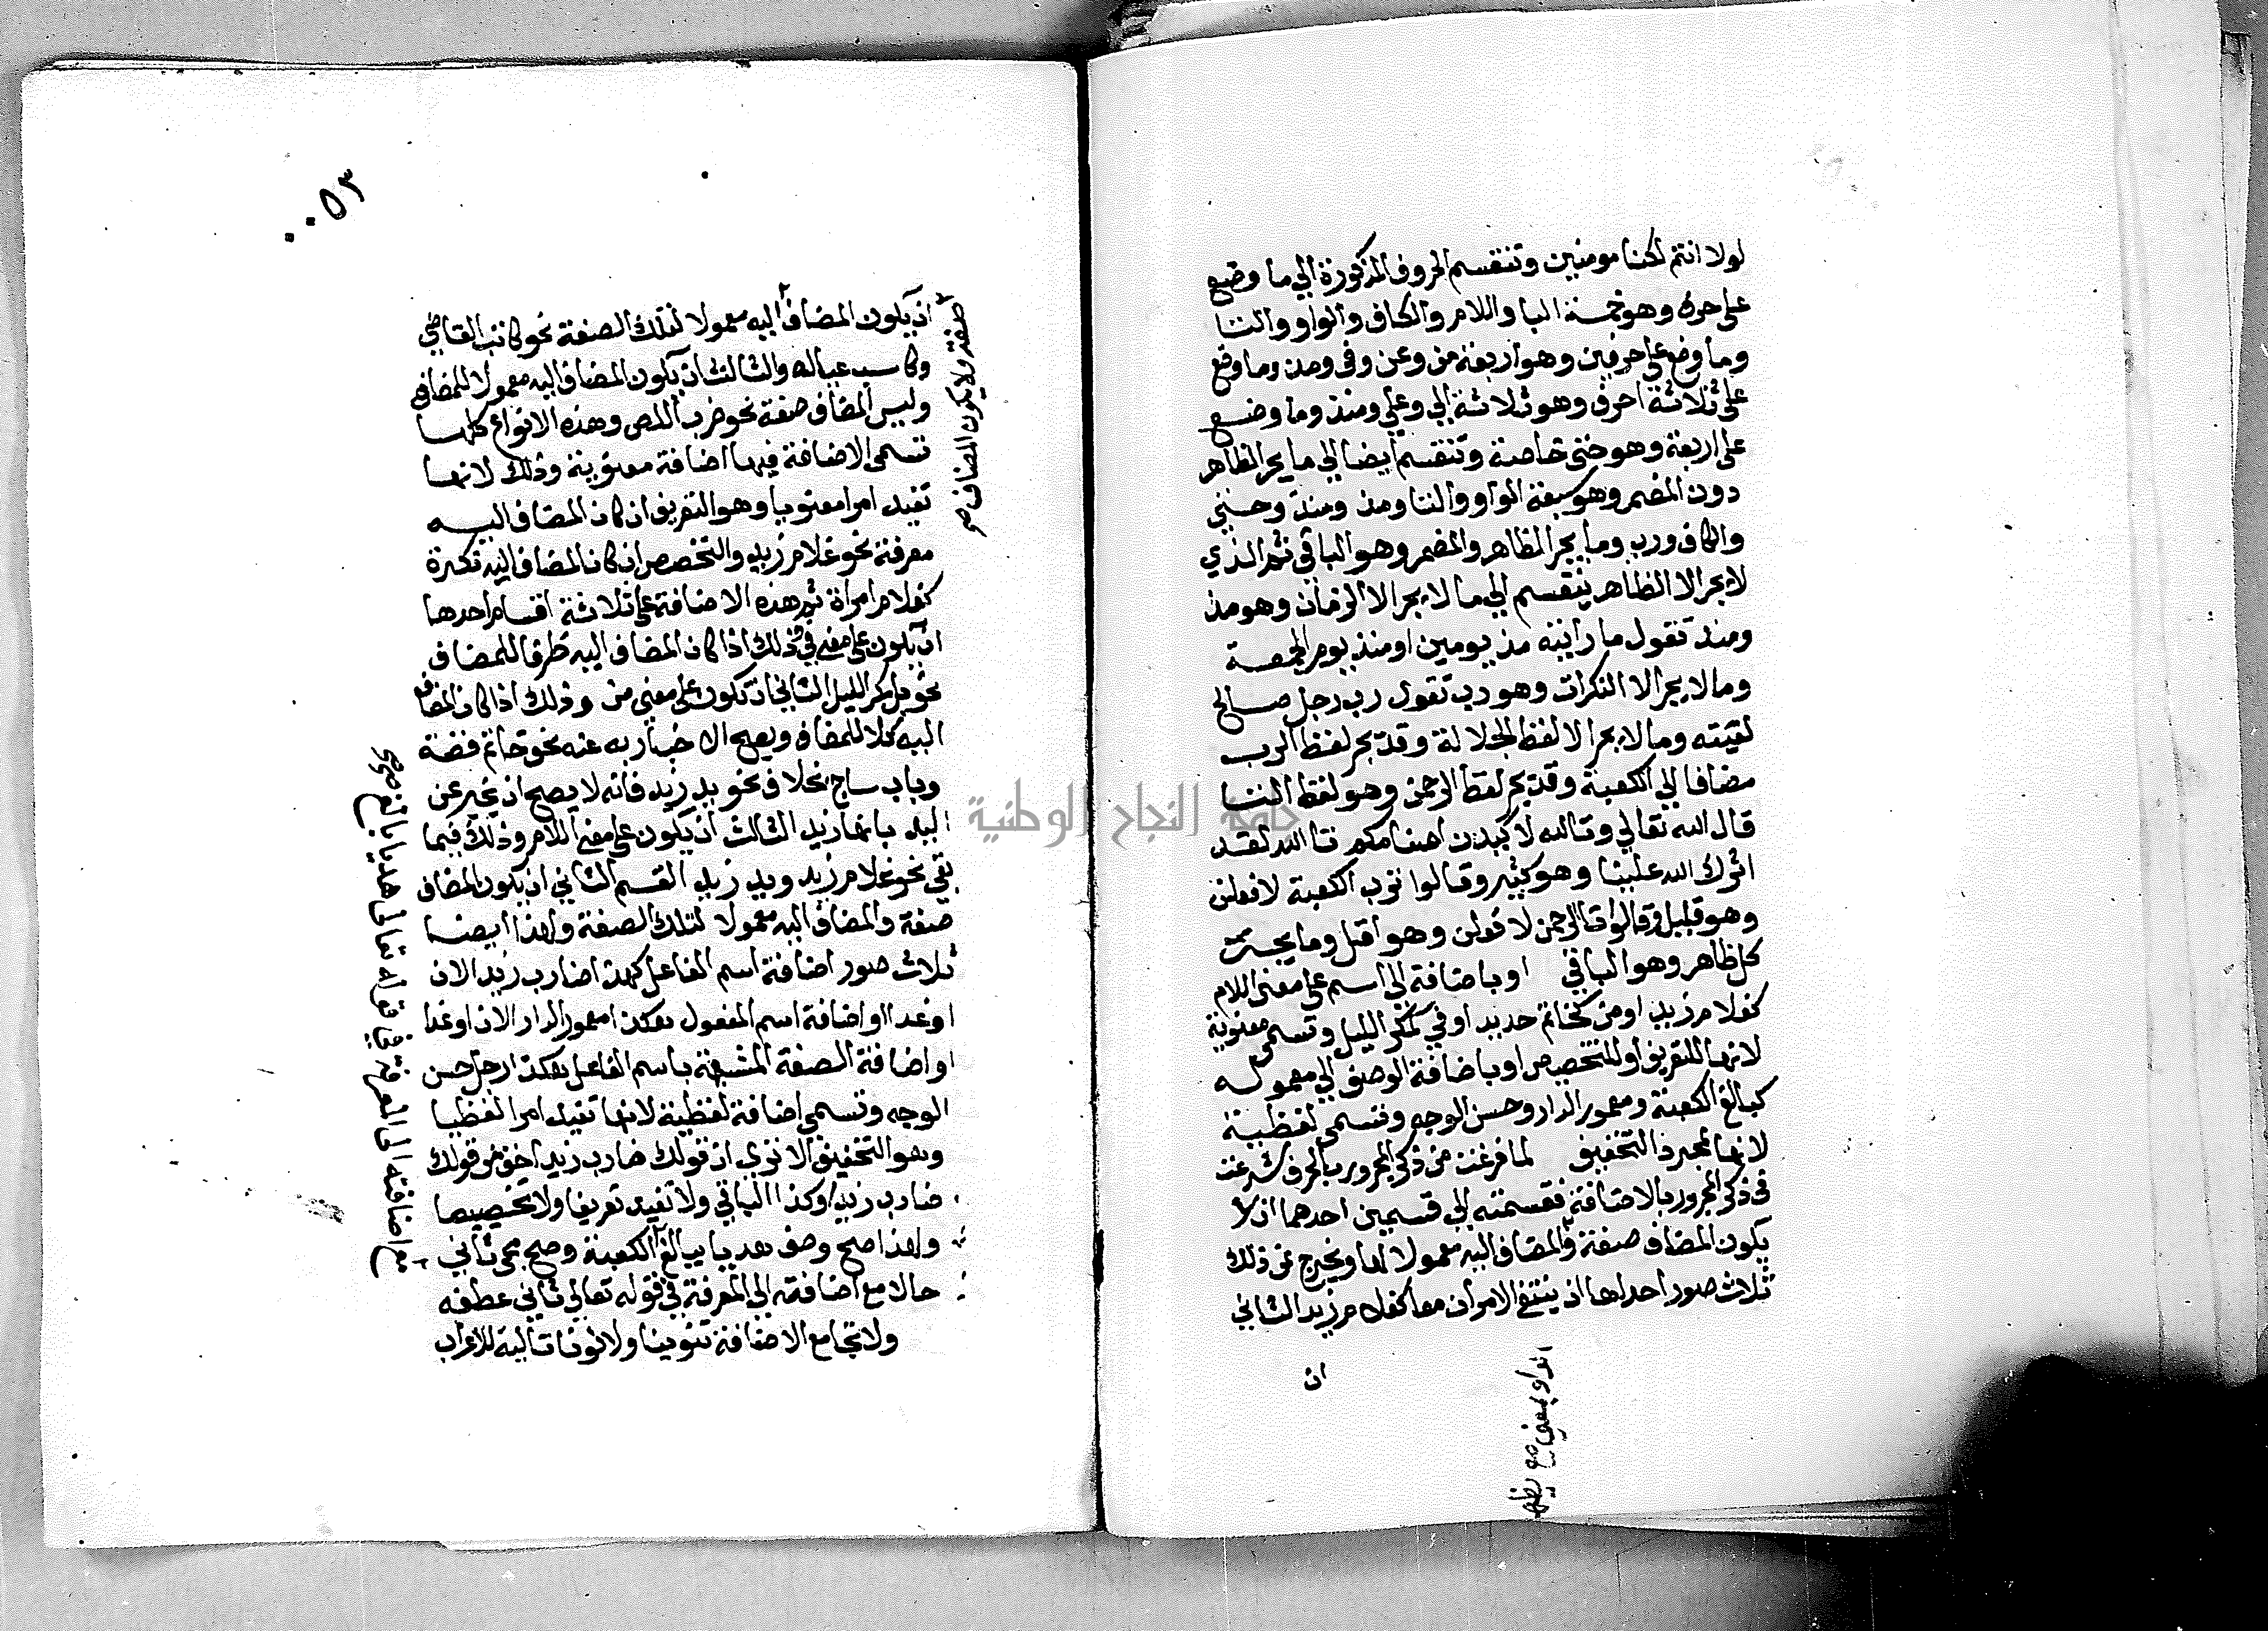 لولا انتم لكنا مومنين وتنقسم الحروف المذكورة الي ما وضع
على حرف وهو خمسة البا واللام والكاف والواو والتا
وما وضع على حرفين وهو اربعة من وعن وفي ومذ وما وضع
على ثلاثة احرف وهو ثلاثة الي وعلي ومنذ وما وضع
على اربعة وهو حتى خاصة وتنقسم ايضا الي ما يجر الظاهر
دون المضمر وهو سبعة الواو والتا ومذ ومنذ وحتي
والكاف ورب وما يجر الظاهر والمضمر وهو الباقي ثم الذي
لا يجر الا الظاهر ينقسم الي ما لا يجر الا الزمان وهو مذ
ومنذ تقول ما رايته مذ يومين او منذ يوم الجمعة
وما لا يجر الا النكرات وهو رب تقول رب رجل صالح
لقيته وما لا يجر الا لفظ الجلالة وقد يجر لفظ الرب
مضافا الي الكعبة وقد يجر لفظ الرحمن وهو لفظ التا
قال الله تعالي وتالله لاكيدن اصنامكم تالله لقد
اثرك الله علينا وهو كثير وقالوا ترب الكعبة لافعلن
وهو قليل وقالوا تالرحمن لافعلن وهو اقل وما يجر
كل ظاهر وهو الباقي او باضافة الي اسم على معنى اللام
كغلام زيد او من كخاتم حديد او في كمكر الليل وتسمى معنوية
لانها للتعريف او للتخصيص او باضافة الوصف الي معموله
كبالغ الكعبة ومعمور الدار وحسن الوجه وتسمى لفظية
لانها لمجرد التخفيف لما فرغت من ذكر المجرور بالحرف شرعت
في ذكر المجرور بالاضافة فقسمته الي قسمين احدهما ان لا
يكون المضاف صفة والمضاف اليه معمولا لها ويخرج من ذلك
ثلاث صور احداها ان ينتفي الامران معا كغلام زيد الثاني
ان
الواو بمعني مع
٠٠٥٣
ان يكون المضاف اليه معمولا لتلك الصفة نحو كاتب القاضي
وكاسب عياله والثالث ان يكون المضاف اليه معمولا للمضاف
وليس المضاف صفة نحو ضرب اللص وهذه الانواع كلها
تسمى الاضافة فيها اضافة معنوية وذلك لانها
تفيد امرا معنويا وهو التعريف ان كان المضاف اليه
معرفة نحو غلام زيد والتخصص ان كان المضاف اليه نكرة
كغلام امراة ثم هذه الاضافة على ثلاثة اقسام احدها
ان يكون على معنى في وذلك اذا كان المضاف اليه ظرفا للمضاف
نحو بل مكر الليل الثاني ان تكون على معنى من وذلك اذا كان المضاف
اليه كلا للمضاف ويصح الاخبار به عنه نحو خاتم فضة
وباب ساج بخلاف نحو يد زيد فانه لا يصح ان يخبر عن
اليد بانها زيد الثالث ان يكون على معنى اللام وذلك فيما
بقي نحو غلام زيد ويد زيد القسم الثاني ان يكون المضاف
صفة والمضاف اليه معمولا لتلك الصفة ولهذا ايضا
ثلاث صور اضافة اسم الفاعل كهذا ضارب زيد الان
او غدا او اضافة اسم المفعول كهذا معمور الدار الان او غدا
او اضافة الصفة المشبهة باسم الفاعل كهذا رجل حسن
الوجه وتسمى اضافة لفظية لانها تفيد امرا لفظيا
وهو التخفيف الا تري ان قولك ضارب زيد اخف من قولك
ضارب زيدا وكذا الباقي ولا تفيد تعريفا ولا تخصيصا
ولهذا صح وصف هديا ببالغ الكعبة وصح مجي ثاني
حالا مع اضافته الي المعرفة في قوله تعالي ثاني عطفه
ولا تجامع الاضافة تنوينا ولا نونا تالية للاعراب
صفة ولا يكون المضاف صح
مع اضافته الى المعرفة في قوله تعالى هديا بالغ
جامعة النجاح الوطنية